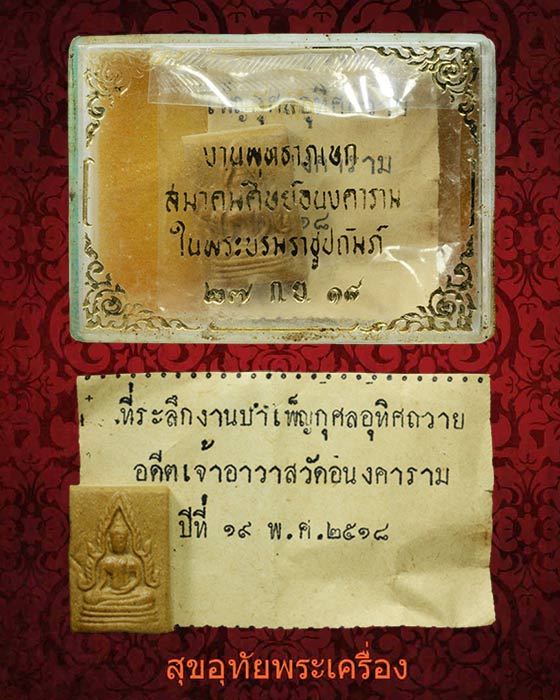 เพ็ญกุศลอุทิศถวาย
งานพุทธาภิเษก
งคาราม
สมาคมศิษย์อนงคาราม
๑๘
ในพระบรมราชูปถัมภ์
๒๗ ก.ย. ๑๘
ที่ระลึกงานบำเพ็ญกุศลอุทิศถวาย
อดีตเจ้าอาวาสวัดอนงคาราม
ปีที่ ๑๙ พ.ศ.๒๕๑๘
สุขอุทัยพระเครื่อง